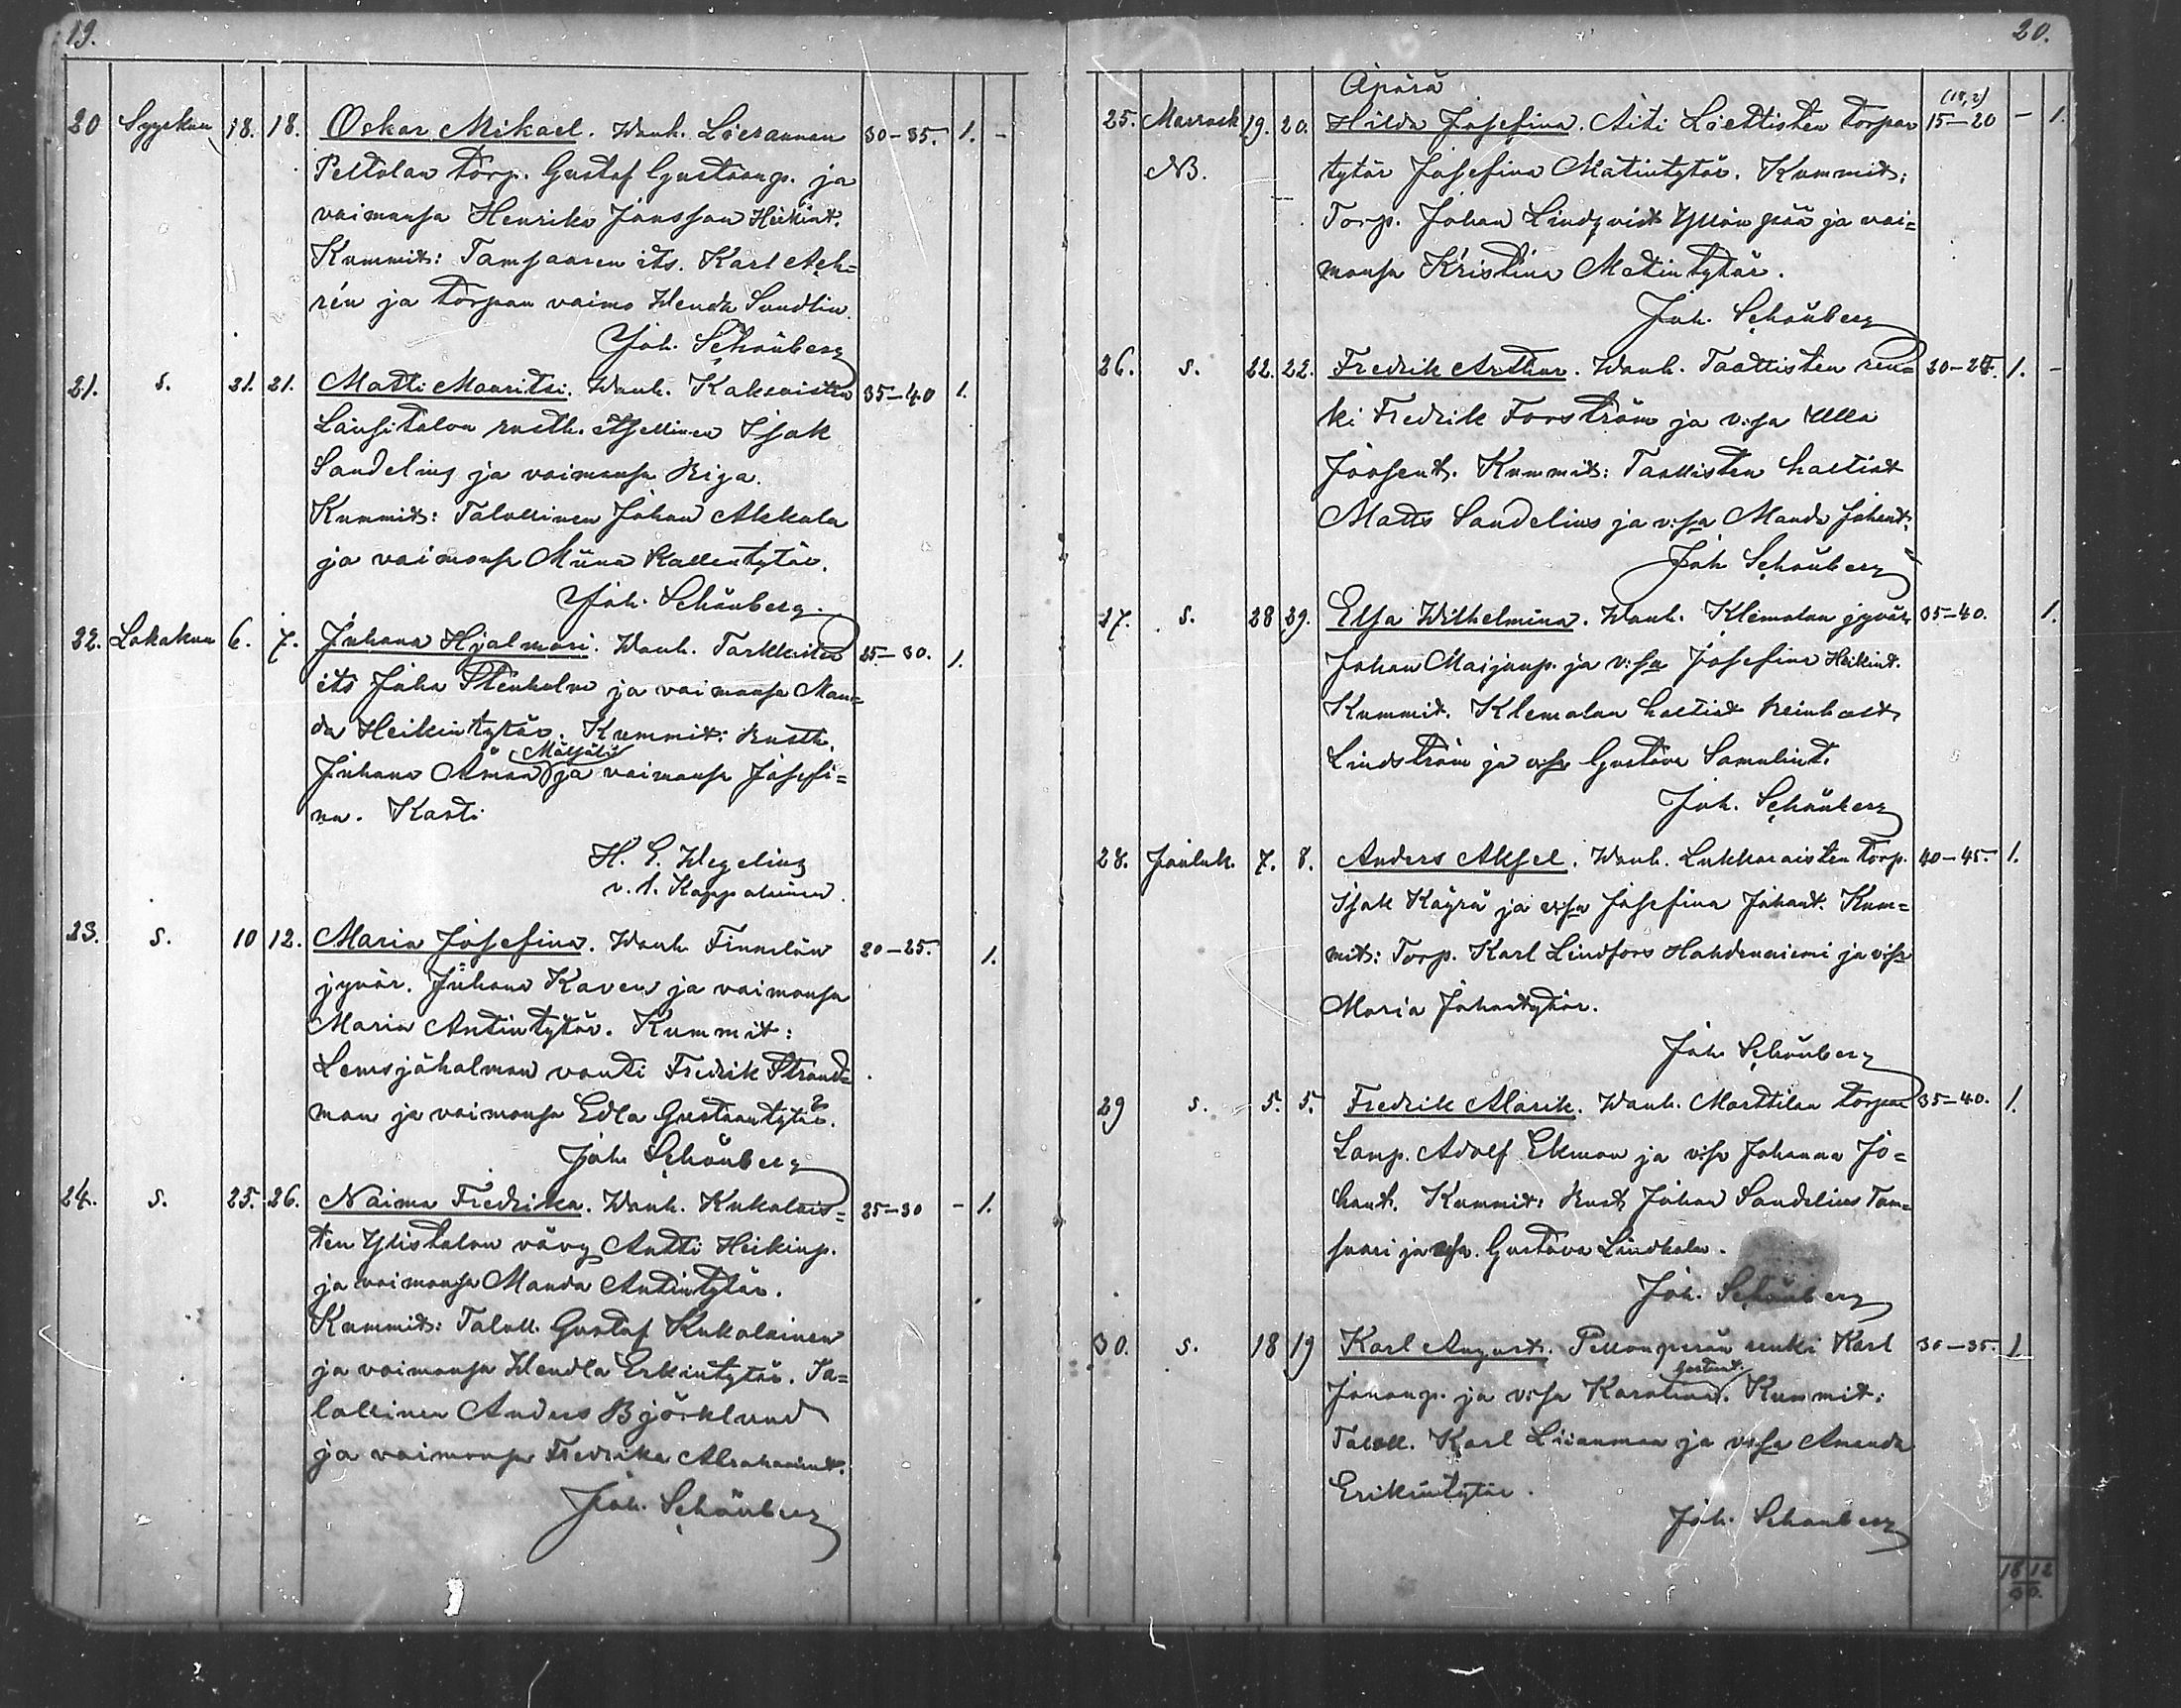 19.
20 Syyskuu 18. 18. Oskar Mikael. Wanh. Lierannan 30-35. 1. -
Peltolan torp. Gustaf Gustaanp. ja
vaimonsa Henrika Jansson Heikint.
Kummit: Tamsaaren its. Karl Ach=
rén ja torpan vaimo Wenda Sundlin.
Joh. Schönberg
21. s. 21. 21. Matti Mauritsi. Wanh. Kaksoisten 35-40 1.
Länsitalon rusth. Isak
Sandelius ja vaimonsa Riga.
Kummit: Talollinen Johan Akkala
ja vaimonsa Miina Kallentytär.
Joh. Schönberg.
22. Lokakuu 6. 7. Juhana Hjalmari. Wanh. Tarkkisten 25-30. 1.
its Juha Stenholm ja vaimonsa Man=
da Heikintytär. Kummit: Rusth.
Juhana Åman Mälsälä ja vaimonsa Josefi=
na. Kasti
H. E. Wegelius
v. t. Kappalainen.
23. s. 10 12. Maria Josefina. Wanh. Finnilän 20-25. 1.
jyvär. Juhana Kaven ja vaimonsa
Maria Antintytär. Kummit:
Lemsjöholman vouti Fredrik Strand=
man ja vaimonsa Edla Gustaantytär.
Joh. Schönberg
24. s. 25. 26. Naima Fredrika. Wanh. Kukolais= 25-30 - 1.
ten Ylistalon vävy Antti Heikinp.
ja vaimonsa Manda Antintytär.
Kummit: Taloll. Gustaf Kukolainen
ja vaimonsa Wendla Erkintytär. Ta=
lollinen Anders Björklund
ja vaimonsa Fredrika Abrahamint.
Joh. Schönberg
20.
Äpärä
25. Marrask 19. 20. Hilda Josefina. Äiti Liettisten torpan (18,2) 15-20 - 1.
NB. tytär Josefina Matintytär. Kummit:
Torp. Johan Lindqvist Yllönpää ja vai=
monsa Kristina Matintytär.
Joh. Schönberg
26. s. 22. 22. Fredrik Arthur. Wanh. Taattisten ren= 20-25. 1. -
ki Fredrik Forström ja v:sa Ulla
Joosent. Kummit: Taattisten haltiat
Matts Sandelius ja v:sa Manda Johant.
Joh Schönberg
27. s. 28 29. Elsa Wilhelmina. Wanh. Klemolan jyvär. 35-40. 1.
Johan Maijanp. ja v:sa Josefina Heikint.
Kummit. Klemolan haltiat Reinholt
Lindström ja v:sa Gustava Samulint.
Joh. Schönberg
28. Jouluk. 7. 8. Anders Aksel. Wanh. Lukkaraisten torp. 40-45. 1.
Isak Käyrä ja v:sa Josefina Johant. Kum=
mit: Torp. Karl Lindfors Hahdenniemi ja v:sa
Maria Johantytär.
Joh. Schönberg
29 s. 5. 5. Fredrik Alarik. Wanh. Marttilan torpan 35-40. 1.
Lamp. Adolf Ekman ja v:sa Johanna Jo=
hant. Kummit: Rusth Johan Sandelius Tam=
saari ja v:sa. Gustava Lindholm.
Joh. Schönberg
30. s. 18 19 Karl August. Pellonperän renki Karl 30-35. 1.
Jonanp. ja v:sa Karolina Gustavt. Kummit:
Taloll. Karl Liinamaa ja v:sa Amanda
Erikintytär.
Joh. Schönberg
18 12
30.